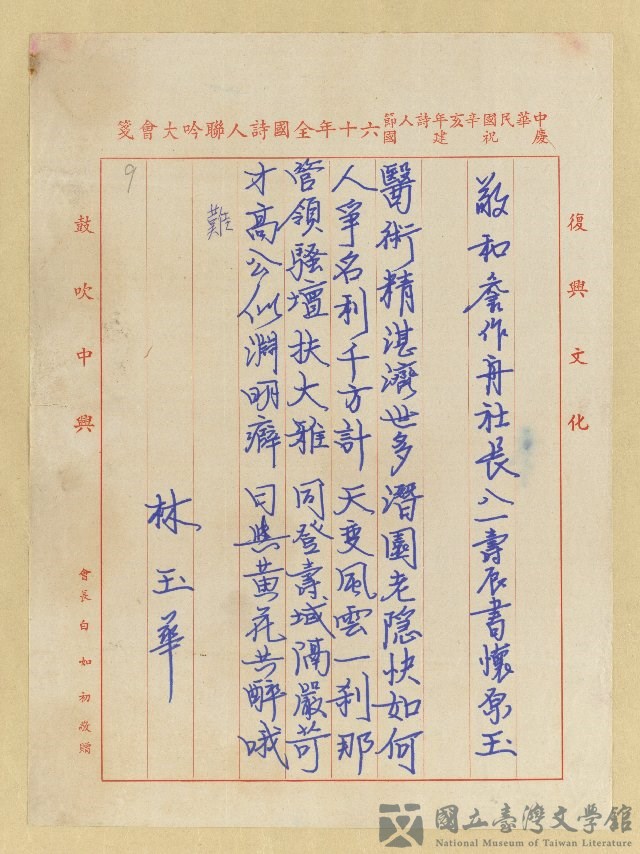 中華民國辛亥年詩人節
慶祝建國六十年全國詩人聯吟大會箋
復興文化
敬和詹作舟社長八一壽辰書懷原玉
醫術精湛濟世多 潛園老隱快如何
人爭名利千方計 天變風雲一剎那
管領騷壇扶大雅 同登壽域隔嚴苛
才高公似淵明癖 日與黃花共醉哦
難
林玉華
9
鼓吹中興
會長白如初敬贈
國立臺灣文學館
National Museum of Taiwan Literature